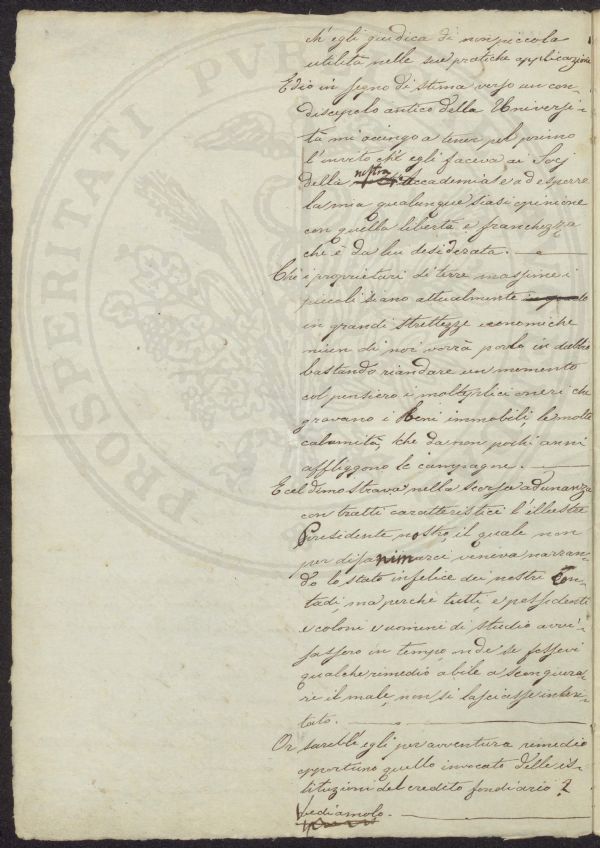 ch'egli giudica di non piccola
utilità nelle sue pratiche applicazioni
Ed io in segno di stima verso un con-
discepolo antico della Universi-
tà mi accingo a tener pel primo
l'invito ch'egli faceva ai Socj
della nostra Accademia e ad esporre
la mia qualunque siasi opinione
con quella libertà e franchezza
che è da lui desiderata.
Che i proprietari di terre massime i
piccoli siano attualmente
in grandi strettezze economiche
niun di noi vorrà porlo in dubbio
bastando riandare un momento
col pensiero i molteplici oneri che
gravano i beni immobili, le molte
calamità, che da non pochi anni
affliggono le campagne.
E cel dimostrava nella scorsa adunanza
con tratti caratteristici l'illustre
Presidente nostro, il quale non
per disanimarci veniva narran-
do lo stato infelice dei nostri Con-
tadi, ma perchè tutti, e possidenti
e coloni e uomini di studio avvi-
sassero in tempo, onde se fossevi
qualche rimedio abile a scongiura-
re il male, non si lasciasse inten-
tato.
Or sarebbe egli per avventura rimedio
opportuno quello invocato delle is-
tituzioni del credito fondiario?
Vediamolo.
PROSPERITATI PVBLI